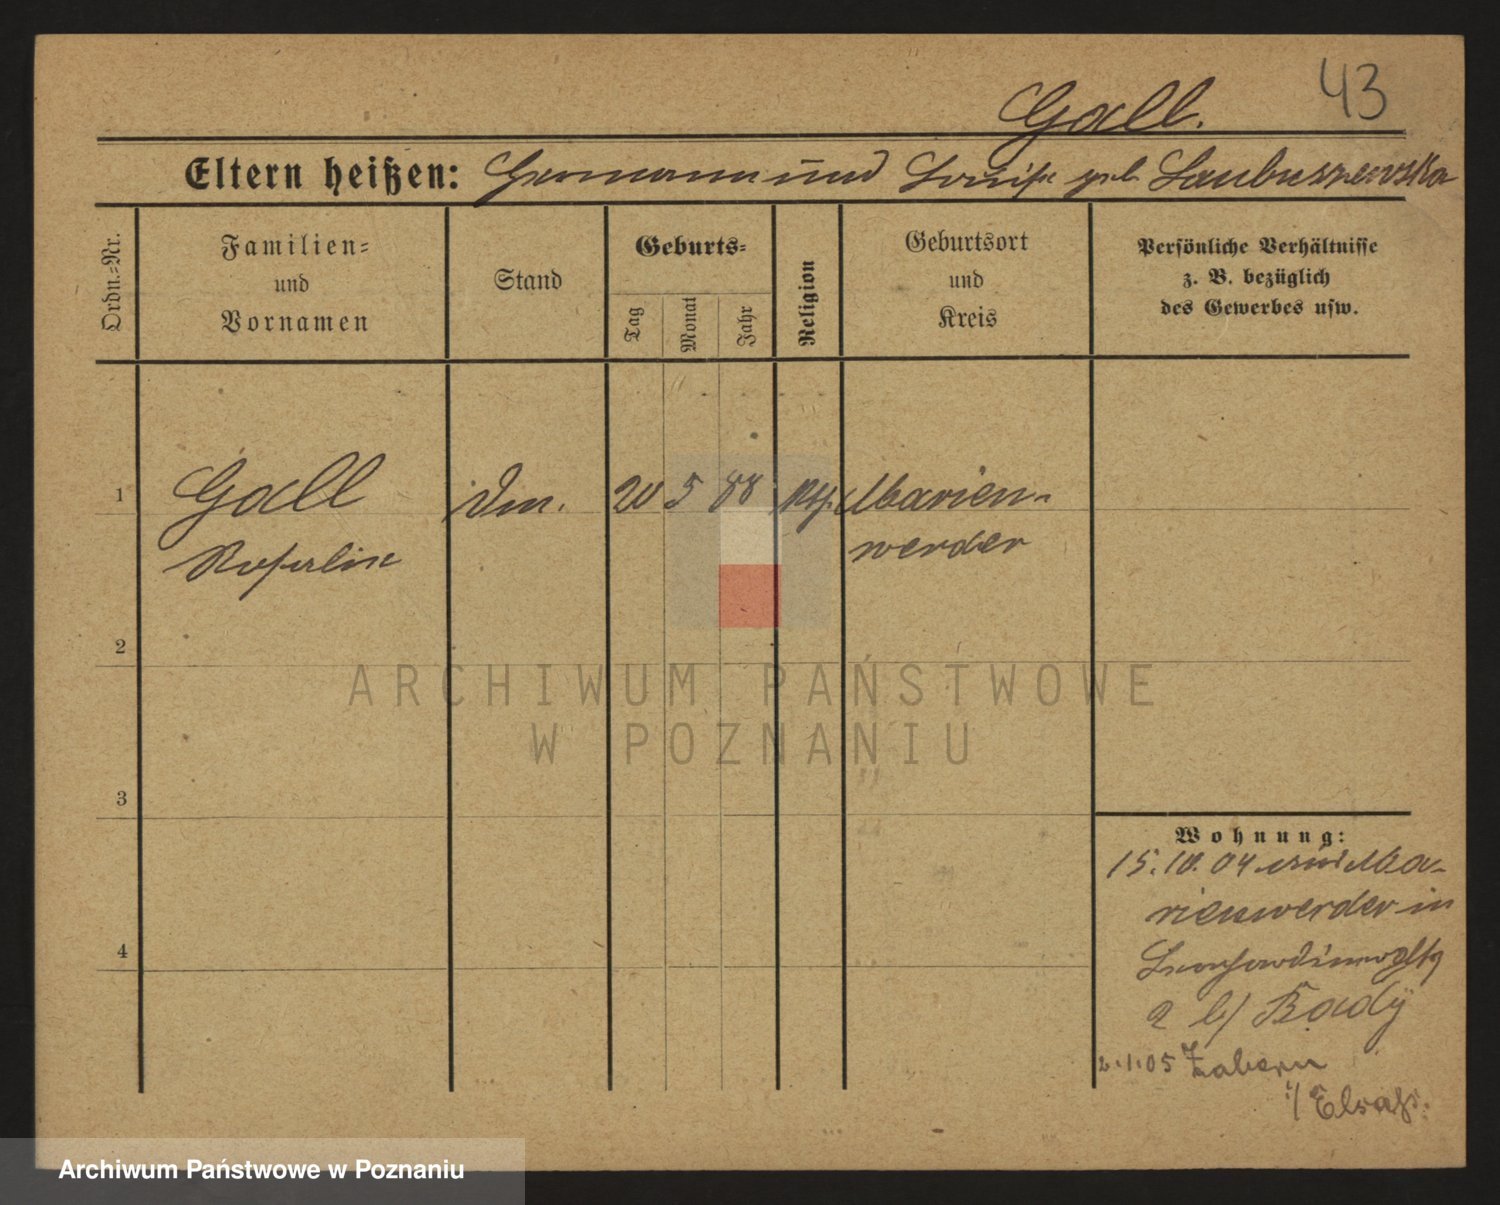 43
Gall.
Eltern heißen: Hermann und Louise geb. Laubuszewska
Ordn.=Nr.
Familien=
und
Vornamen
Stand
Geburts=
Tag
Monat
Jahr
Religion
Geburtsort
und
Kreis
Persönliche Verhältnisse
z. B. bezüglich
des Gewerbes usw.
1
Gall
20 5 88
Marien-
werder
2
ARCHIWUM PAŃSTWOWE
W POZNANIU
3
Wohnung:
15.10.04 aus Ma-
rienwerder in
4
2 b/
2.1.05 Zabern
i/ Elsaß.
Archiwum Państwowe w Poznaniu